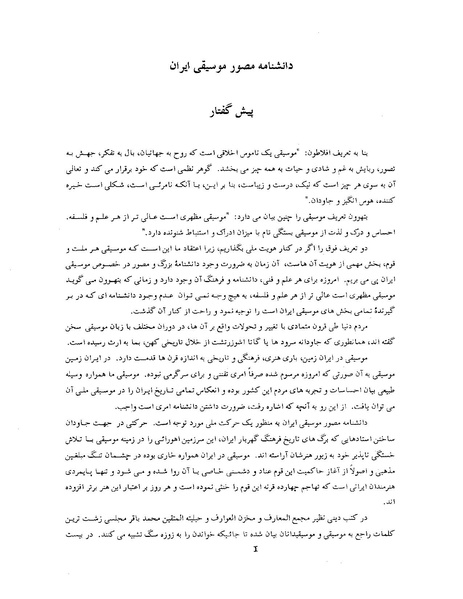 دانشنامه مصور موسیقی ایران
پیش گفتار
بنا به تعریف افلاطون: "موسیقی یک ناموس اخلاقی است که روح به جهانیان، بال به تفکر، جهش به
تصور، ربایش به غم و شادی و حیات به همه چیز می بخشد. گوهر نظمی است که خود برقرار می کند و تعالی
آن به سوی هر چیز است که نیک، درست و زیباست، بنا بر این، با آنکه نامرئی است، شکلی است خیره
کننده، هوس انگیز و جاودان."
بتهوون تعریف موسیقی را چنین بیان می دارد: "موسیقی مظهری است عالی تر از هر علم و فلسفه.
احساس و درک و لذت از موسیقی بستگی تام با میزان ادرک و استنباط شنونده دارد."
دو تعریف فوق را اگر در کنار هویت ملی بگذاریم، زیرا اعتقاد ما این است که موسیقی هر ملت و
قوم، بخش مهمی از هویت آن هاست، آن زمان به ضرورت وجود دانشنامۀ بزرگ و مصور در خصوص موسیقی
ایران پی می بریم. امروزه برای هر علم و فنی، دانشنامه و فرهنگ آن وجود دارد و زمانی که بتهوون می گوید
موسیقی مظهری است عالی تر از هر علم و فلسفه، به هیچ وجه نمی توان عدم وجود دانشنامه ای که در بر
گیرندۀ تمامی بخش های موسیقی ایران است را توجیه نمود و راحت از کنار آن گذشت.
مردم دنیا طی قرون متمادی با تغییر و تحولات واقع بر آن ها، در دوران مختلف با زبان موسیقی سخن
گفته اند، همانطوری که جاودانه سرود ها یا گاتا اشوزرتشت از خلال تاریخی کهن، بما به ارث رسیده است.
موسیقی در ایران زمین، باری هنری، فرهنگی و تاریخی به اندازه قرن ها قدمت دارد. در ایران زمین
موسیقی به آن صورتی که امروزه مرسوم شده صرفاً امری تفننی و برای سرگرمی نبوده. موسیقی ما همواره وسیله
طبیعی بیان احساسات و تجربه های مردم این کشور بوده و انعکاس تمامی تاریخ ایران را در موسیقی ملی آن
می توان یافت. از این رو به آنچه که اشاره رفت، ضرورت داشتن دانشنامه امری است واجب.
دانشنامه مصور موسیقی ایران به منظور یک حرکت ملی مورد توجه است. حرکتی در جهت جاودان
ساختن استادهایی که برگ های تاریخ فرهنگ گهربار ایران، این سرزمین اهورائی را در زمینه موسیقی بما تلاش
خستگی ناپذیر خود به زیور هنرشان آراسته اند. موسیقی در ایران همواره خاری بوده در چشمان تنگ مبلغین
مذهبی و اصولاً از آغاز حاکمیت این قوم عناد و دشمنی خاصی با آن روا شده و می شود و تنها پایمردی
هنرمندان ایرانی است که تهاجم چهارده قرنه این قوم را خنثی نموده است و هر روز بر اعتبار این هنر برتر افزوده
اند.
در کتب دینی نظیر مجمع المعارف و مخزن العوارف و حیلته المتقین محمد باقر مجلسی زشت ترین
کلمات راجع به موسیقی و موسیقیدانان بیان شده تا جائیکه خواندن را به زوزه سگ تشبیه می کنند. در بیست
I